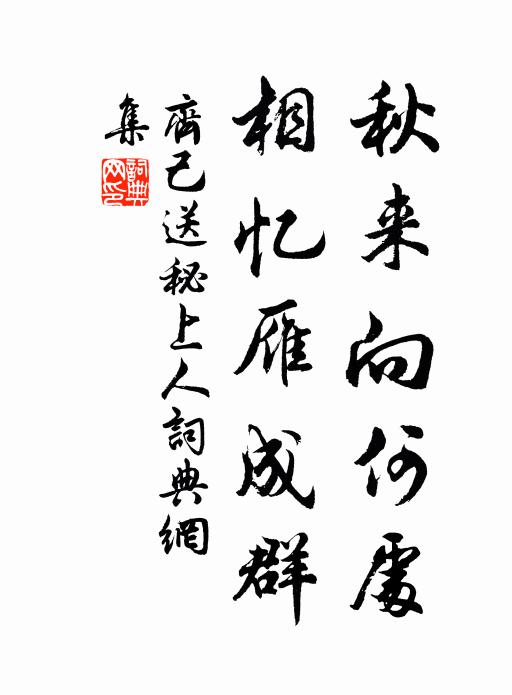 秋来向何處
相忆雁成群
齊己送秘上人詞典網
集
詞典网印